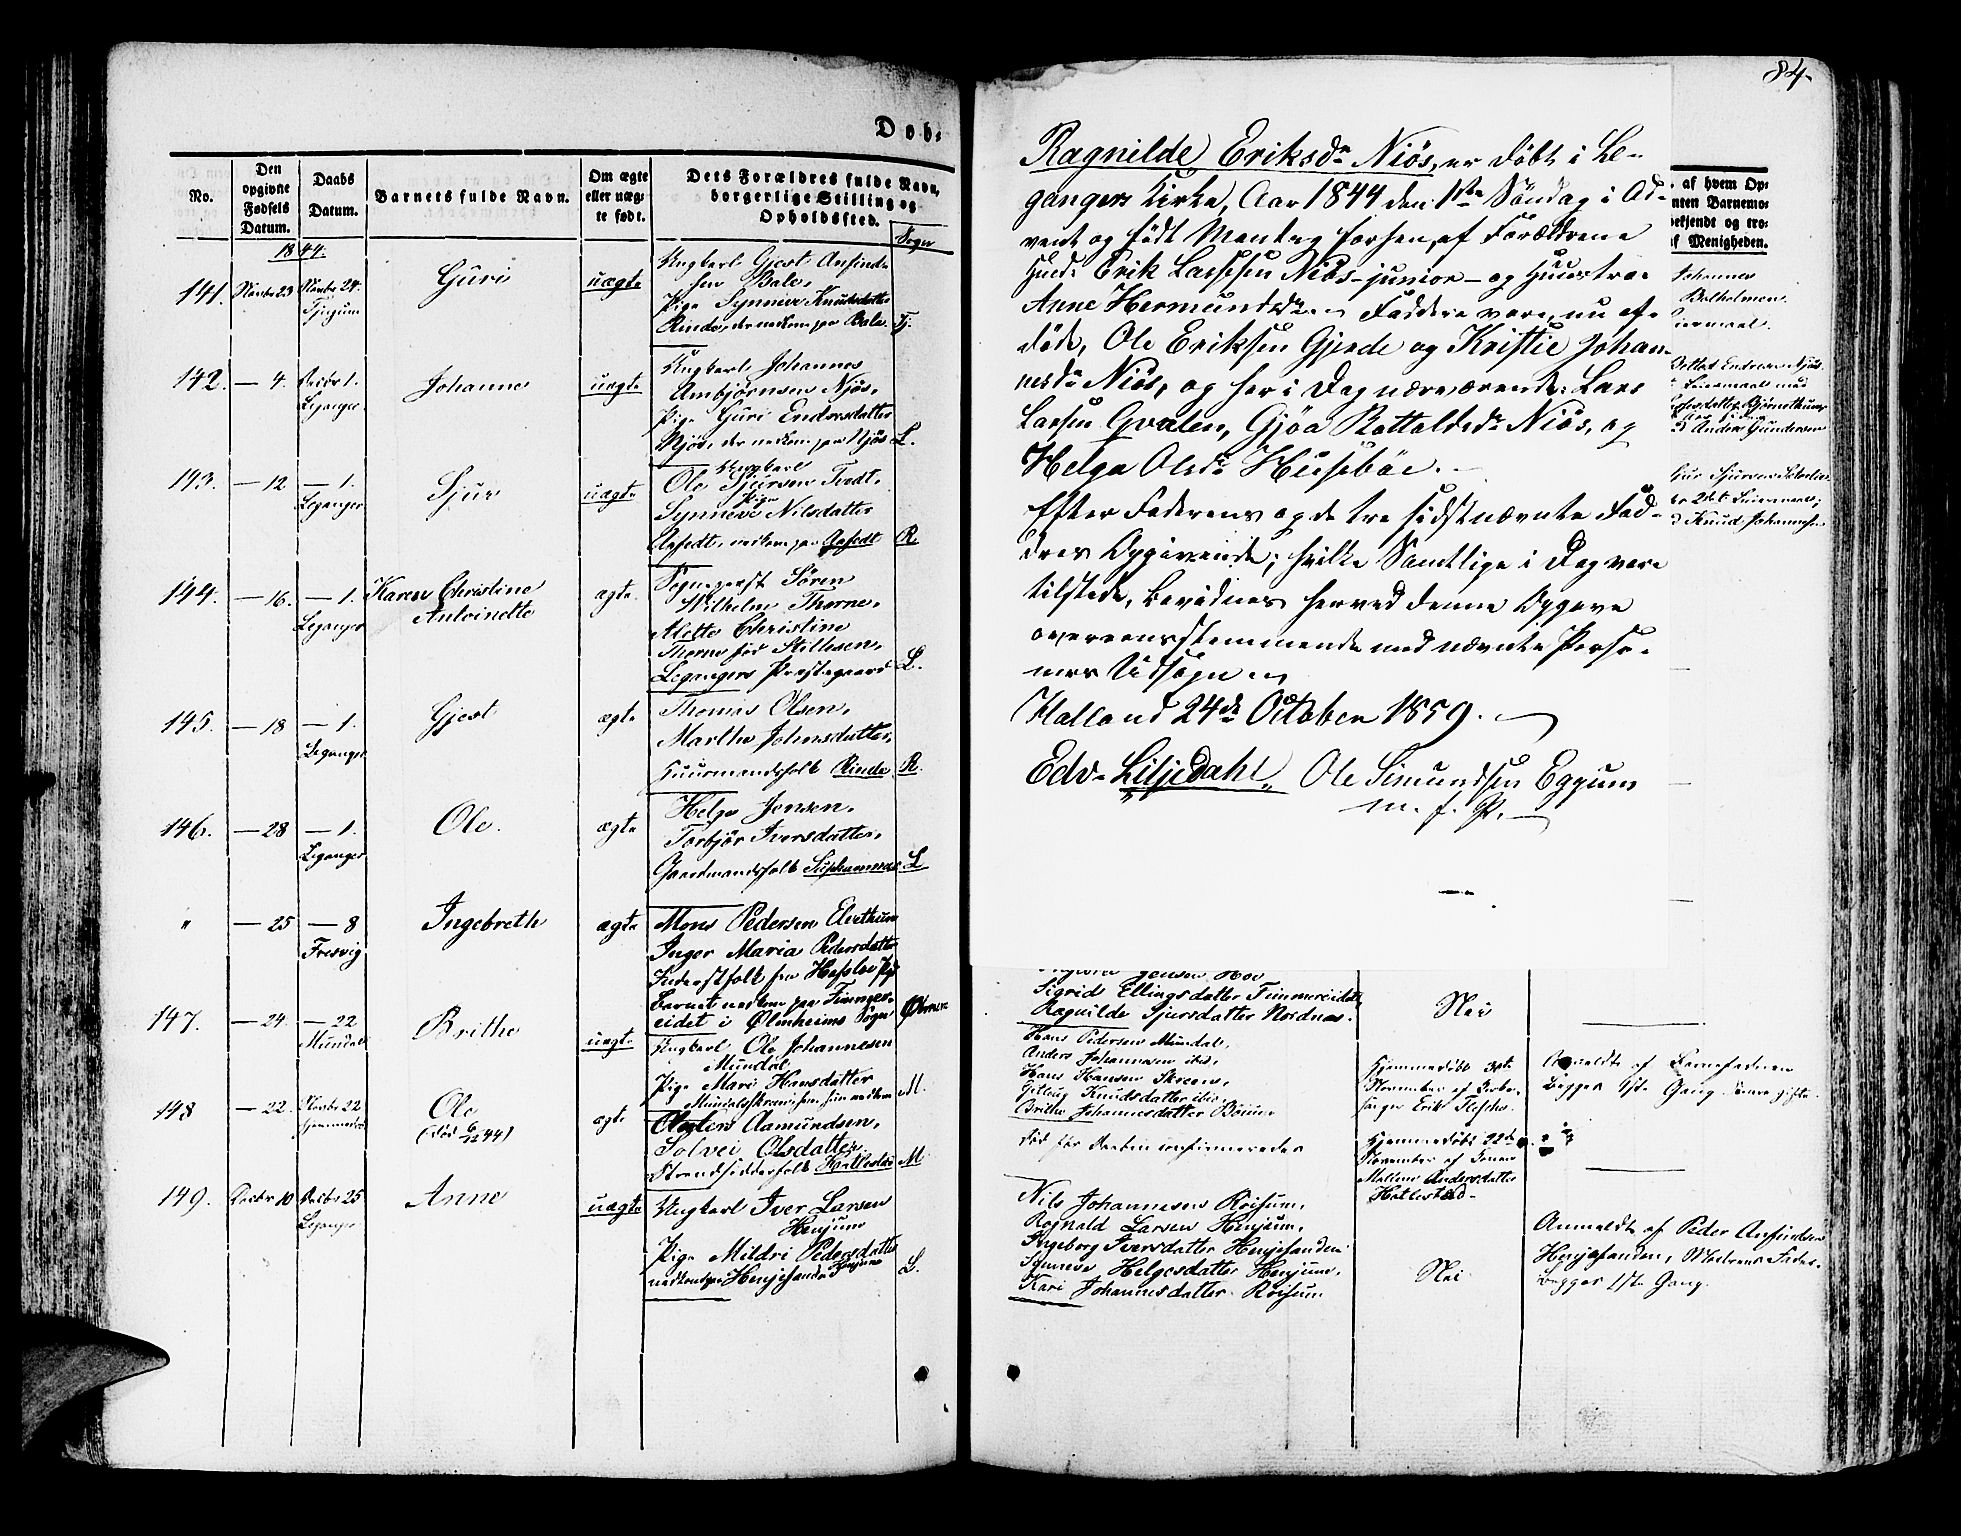 84.
Døb.
No.
Den opgivne Fødsels Datum.
Daabs Datum.
Barnets fulde Navn.
Om ægte eller uæg-te født.
Dets Forældres fulde Navn, borgerlige Stilling og Opholdssted.
Sogn
1844.
141. Novbr 23 Novbr 24. Tjugum Guri uægte
Ungkarl Gjest Anfind-
sen Bale.
Pige Synneve Knudsdatter
Rinde, der nedkom paa Bale. Tj.
142. — 4. Decbr 1. Leganger Johannes uægte
Ungkarl Johannes
Ambjørnsen Njøs,
Pige Guri Endresdatter
Njøs, der nedkom paa Njøs L.
143. — 12 — 1. Leganger Sjur uægte
Ungkarl
Ole Sjursen Tvedt.
Pige
Synneve Nilsdatter
nedkom paa R.
144. — 16. — 1. Leganger Karen Christine Antoinette ægte
Sogneprest Sören
Wilhelm Thorne,
Alette Christine
Thorne fød Stiksen,
Legangers Præstegaard L.
145. — 18 — 1. Leganger Gjest ægte
Thomas Olsen,
Marthe Johnsdatter,
Huusmandsfolk Rinde R.
146. — 28 — 1. Leganger Ole. ægte
Helge Jensen,
Torbjør Iversdatter,
Gaardmandsfolk L
" — 25 — 8 Fresvig Ingebreth ægte
Mons Pedersen
Inger Maria Pedersdatter
Inderstfolk fra Hafslo Pgd
Barnet nedkom paa Finnger-
eidet i Ølmheims Sogn
147. — 24. — 22 Mundal Brithe uægte
Ungkarl Ole Johannesen
Mundal
Pige Mari Hansdatter
Mundalsskreien, hun nedkom M.
148 — 22. Novbr 22 hjemmedøbt Ole (død 6/12 44) ægte
Aamundsen,
Solvei Olsdatter
Strandsidderfolk Hatlestad M.
149. Decbr 10 Decbr 25 Leganger Anne uægte
Ungkarl Iver Larsen
Henjum
Pige Mildri Pedersdatter
nedkom paa Henjesanden Henjum L.
Ragnilde Eriksdr Niös, er döbt i Le-
gangers Kirke, Aar 1844 den 1ste Söndag i Ad-
vent og födt Mandag forhen, af Forældrene
Husbd. Erik Lassesen Niös - junior - og Huustroe
Anne Hermundsdr. Faddere vare, nu af-
döde, Ole Eriksen Gjerde og Kristie Johan-
nesdr Niös, og her i Dag nærværende: Lars
Larsen Gvalen, Gjöa Botolfsdr Niös, og
Helga Olsdr Huseböe.
Efter Faderens og de tre sidstnævnte Fad-
dres Opgivende, hvilke Samtlige i Dag vare
tilstede, bevidnes herved denne Opgave
overeensstemmende med nævnte Perso-
ners Udsagn
Halland 24de October 1859.
Edv. Liljedahl. Ole Simundsen Eggum
m. f. P.
af hvem Op-
nten Barnemo-
bekjendt og tro-
f Menigheden.
Johannes
Balholmen
Leiermaal.
Endresen Njøs
Leiermaal med
Anders Gundersen
2det Leiermaal;
Knud Johannesen
Sigrid Ellingsdatter Timmereidet
Ragnilde Sjursdatter Nordnes.
Nei
Hans Pedersen Mundal,
Anders Johannesen ibid.
Hans Hansen Skreen,
Gitlaug Knudsdatter ibid.
Brithe Johannesdatter Böium
Hjemmedöbt 30te
November af Forbe-
sørger Erik
Anmeldt af Barnefaderen
Begges 1ste Gang.
død før Daaben confirmeredes
Hjemmedöbt 22de
November af
Andersdatter
Hatlestad.
Nils Johannesen Röisum,
Rognald Larsen Henjum,
Ingeborg Iversdatter Henjesanden
Synneve Helgesdatter Henjum,
Kari Johannesdatter Röisum
Nei
Anmeldt af Peder Anfindsen
Henjesanden, Moderens Fader.
Begges 1ste Gang.